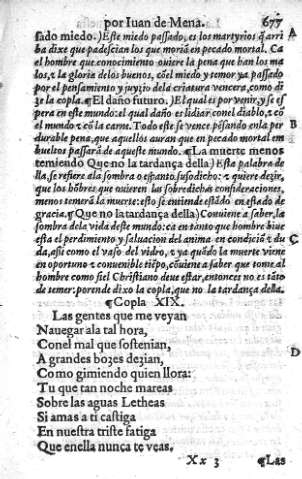 por Iuan de Mena. 677
sado miedo.) Este miedo passado, es los martyrios q̃ arri
ba dixe que padescian los que moriã en pecado mortal. Ca
el hombre que conocimiento ouiere la pena que han los ma
los, z la gloria delos buenos, cõ el miedo y temor ya passado
por el pensamiento y juyzio dela criatura vencera, como di
ze la copla. ¶ El daño futuro.) El qual es por venir, y se es
pera en este mundo: el qual daño es lidiar conel diablo, z cõ
el mundo z cõ la carne. Todo este se vence pẽsando enlla per
durable pena, que aquellos auran que en pecado mortal em
bueltos passarã de aqueste mundo. ¶ La muerte menos
temiendo Que no la tardança della) Esta palabra de
lla, se refiere ala sombra o espanto susodicho: z quiere dezir,
que los hõbres que ouieren las sobredichas consideraciones,
menos temerã la muerte: esto se entiende estãdo en estado de
gracia. ¶ Que no la tardança della) Conuiene a saber, la
sombra dela vida deste mundo: ca en tanto que hombre biue
esta el perdimiento y saluacion del anima en condiciõ z du
da, assi como el vaso del vidro, z ya quãdo la muerte viene
en oportuno z conuenible tiẽpo, cõuiene a saber que tome al
hombre como fiel Christiano deue estar, entonces no es tãto
de temer: porende dixo la copla, que no la tardança della.
¶ Copla XIX.
Las gentes que me veyan
Nauegar ala tal hora,
Conel mal que sostenian,
A grandes bozes dezian,
Como gimiendo quien llora:
Tu que tan noche mareas
Sobre las aguas Letheas
Si amas a ti castiga
En nuestra triste fatiga
Que enella nunca te veas.
Xx 3 ¶ Las
A
B
C
D